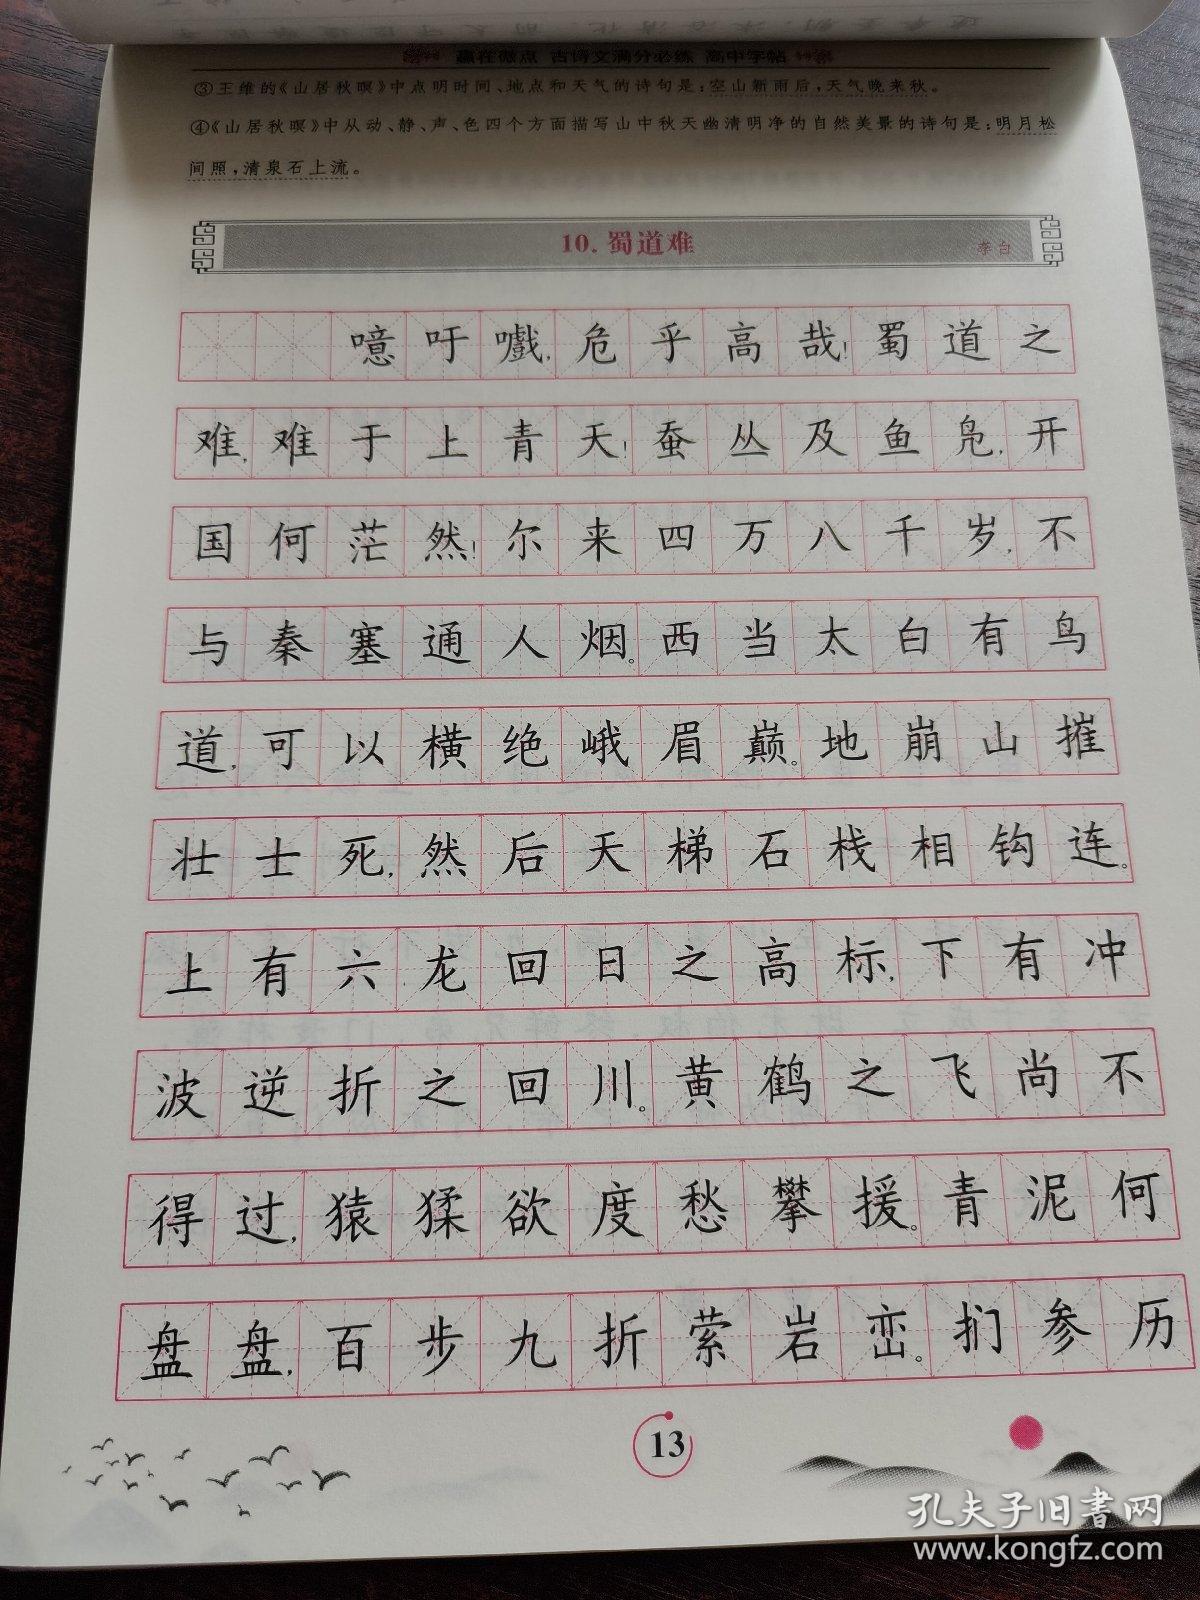 赢在微点 古诗文满分必练 高中字帖
③王维的《山居秋暝》中点明时间、地点和天气的诗句是：空山新雨后，天气晚来秋。
④《山居秋暝》中从动、静、声、色四个方面描写山中秋天幽清明净的自然美景的诗句是：明月松
间照，清泉石上流。
10. 蜀道难
李白
噫吁嚱，危乎高哉！蜀道之
难，难于上青天！蚕丛及鱼凫，开
国何茫然！尔来四万八千岁，不
与秦塞通人烟。西当太白有鸟
道，可以横绝峨眉巅。地崩山摧
壮士死，然后天梯石栈相钩连。
上有六龙回日之高标，下有冲
波逆折之回川。黄鹤之飞尚不
得过，猿猱欲度愁攀援。青泥何
盘盘，百步九折萦岩峦。扪参历
13
孔夫子旧书网
www.kongfz.com